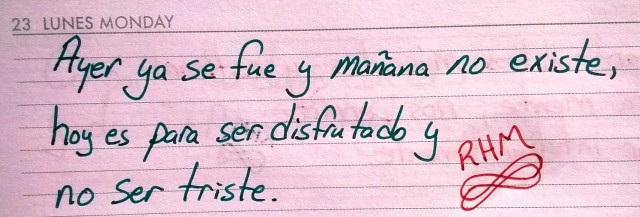 23 LUNES MONDAY
Ayer ya se fue y mañana no existe,
hoy es para ser disfrutado y
RHM
no ser triste.